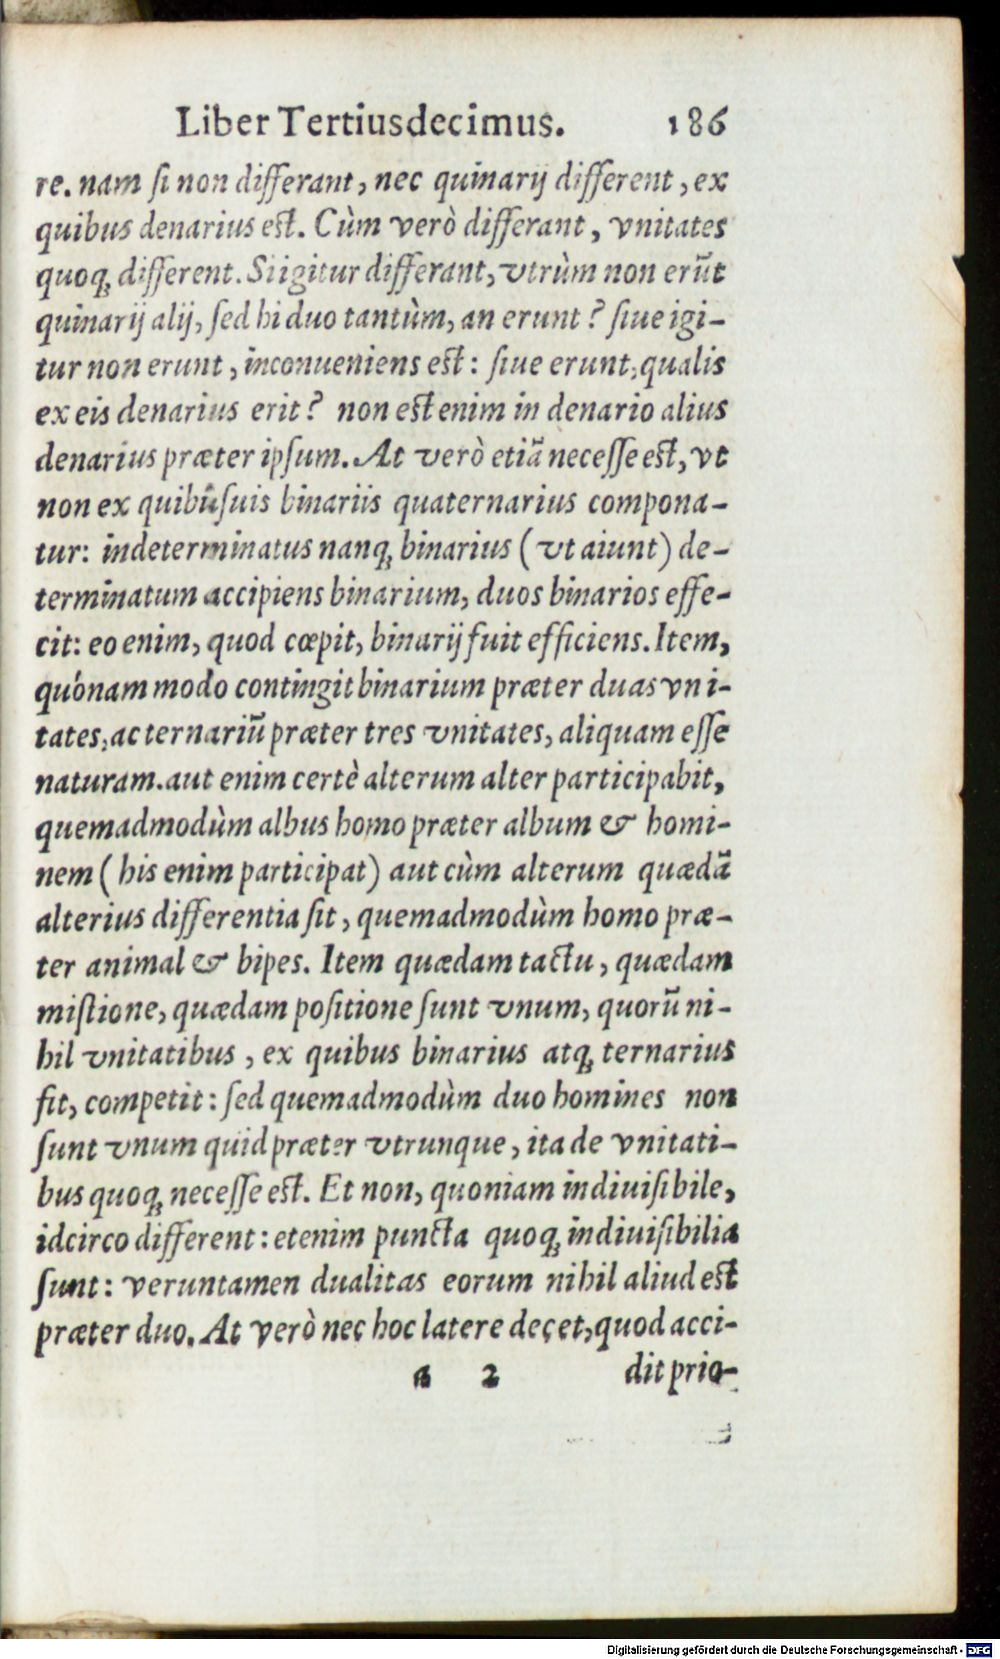 Liber Tertiusdecimus. 186
re. nam ſi non differant, nec quinarij different, ex
quibus denarius eſt. Cùm verò differant, vnitates
quoq; different. Si igitur differant, vtrùm non erũt
quinarij alij, ſed hi duo tantùm, an erunt? ſiue igi-
tur non erunt, inconueniens eſt: ſiue erunt, qualis
ex eis denarius erit? non eſt enim in denario alius
denarius præter ipſum. At verò etiã neceſſe eſt, vt
non ex quibũſuis binariis quaternarius compona-
tur: indeterminatus nanq; binarius (vt aiunt) de-
terminatum accipiens binarium, duos binarios effe-
cit: eo enim, quod cœpit, binarij fuit efficiens. Item,
quónam modo contingit binarium præter duas vni-
tates, ac ternariũ præter tres vnitates, aliquam eſſe
naturam. aut enim certè alterum alter participabit,
quemadmodùm albus homo præter album & homi-
nem (his enim participat) aut cùm alterum quædã
alterius differentia ſit, quemadmodùm homo præ-
ter animal & bipes. Item quædam tactu, quædam
miſtione, quædam poſitione ſunt vnum, quorũ ni-
hil vnitatibus, ex quibus binarius atq; ternarius
fit, competit: ſed quemadmodùm duo homines non
ſunt vnum quid præter vtrunque, ita de vnitati-
bus quoq; neceſſe eſt. Et non, quoniam indiuiſibile,
idcirco different: etenim puncta quoq; indiuiſibilia
ſunt: veruntamen dualitas eorum nihil aliud eſt
præter duo. At verò nec hoc latere decet, quod acci-
a 2 dit prio-
Digitalisierung gefördert durch die Deutsche Forschungsgemeinschaft - DFG